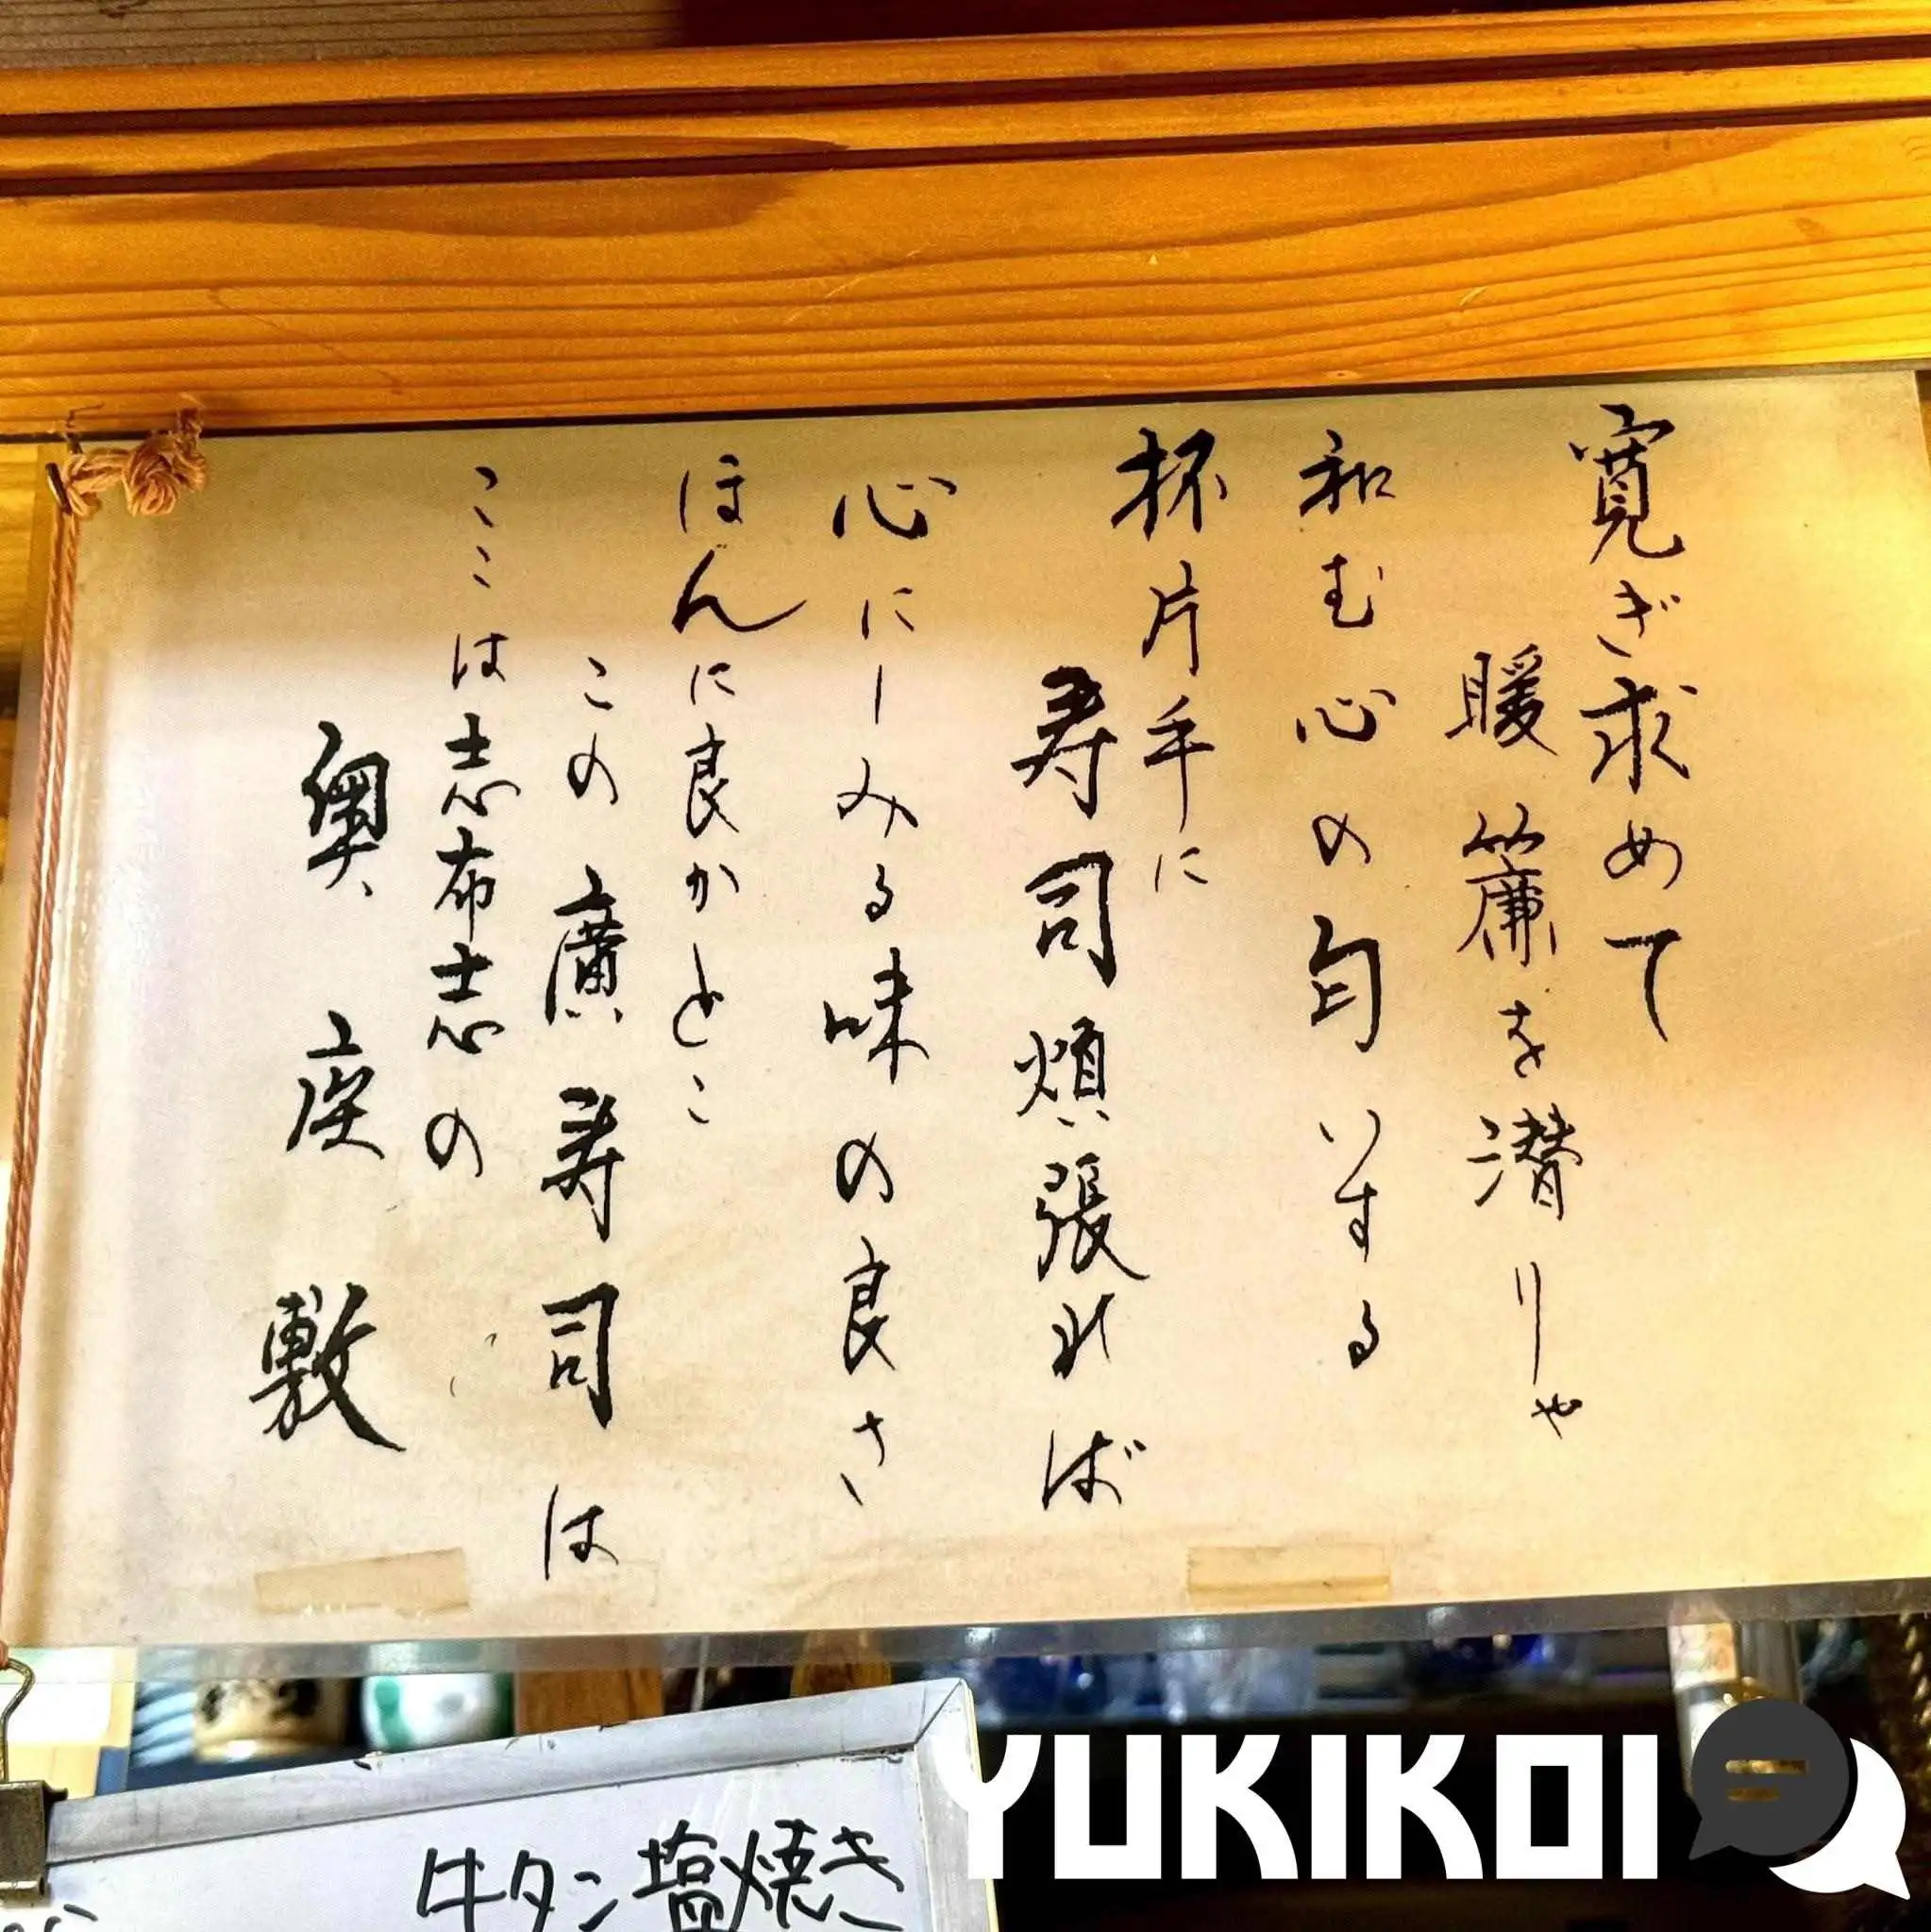 寛ぎ求めて
暖簾を潜りゃ
和む心の匂いする
杯片手に
寿司頬張れば
心にしみる味の良さ
ほんに良かとこ
この廣寿司は
ここは志布志の
奥座敷
牛タン塩焼き
YUKIKOI